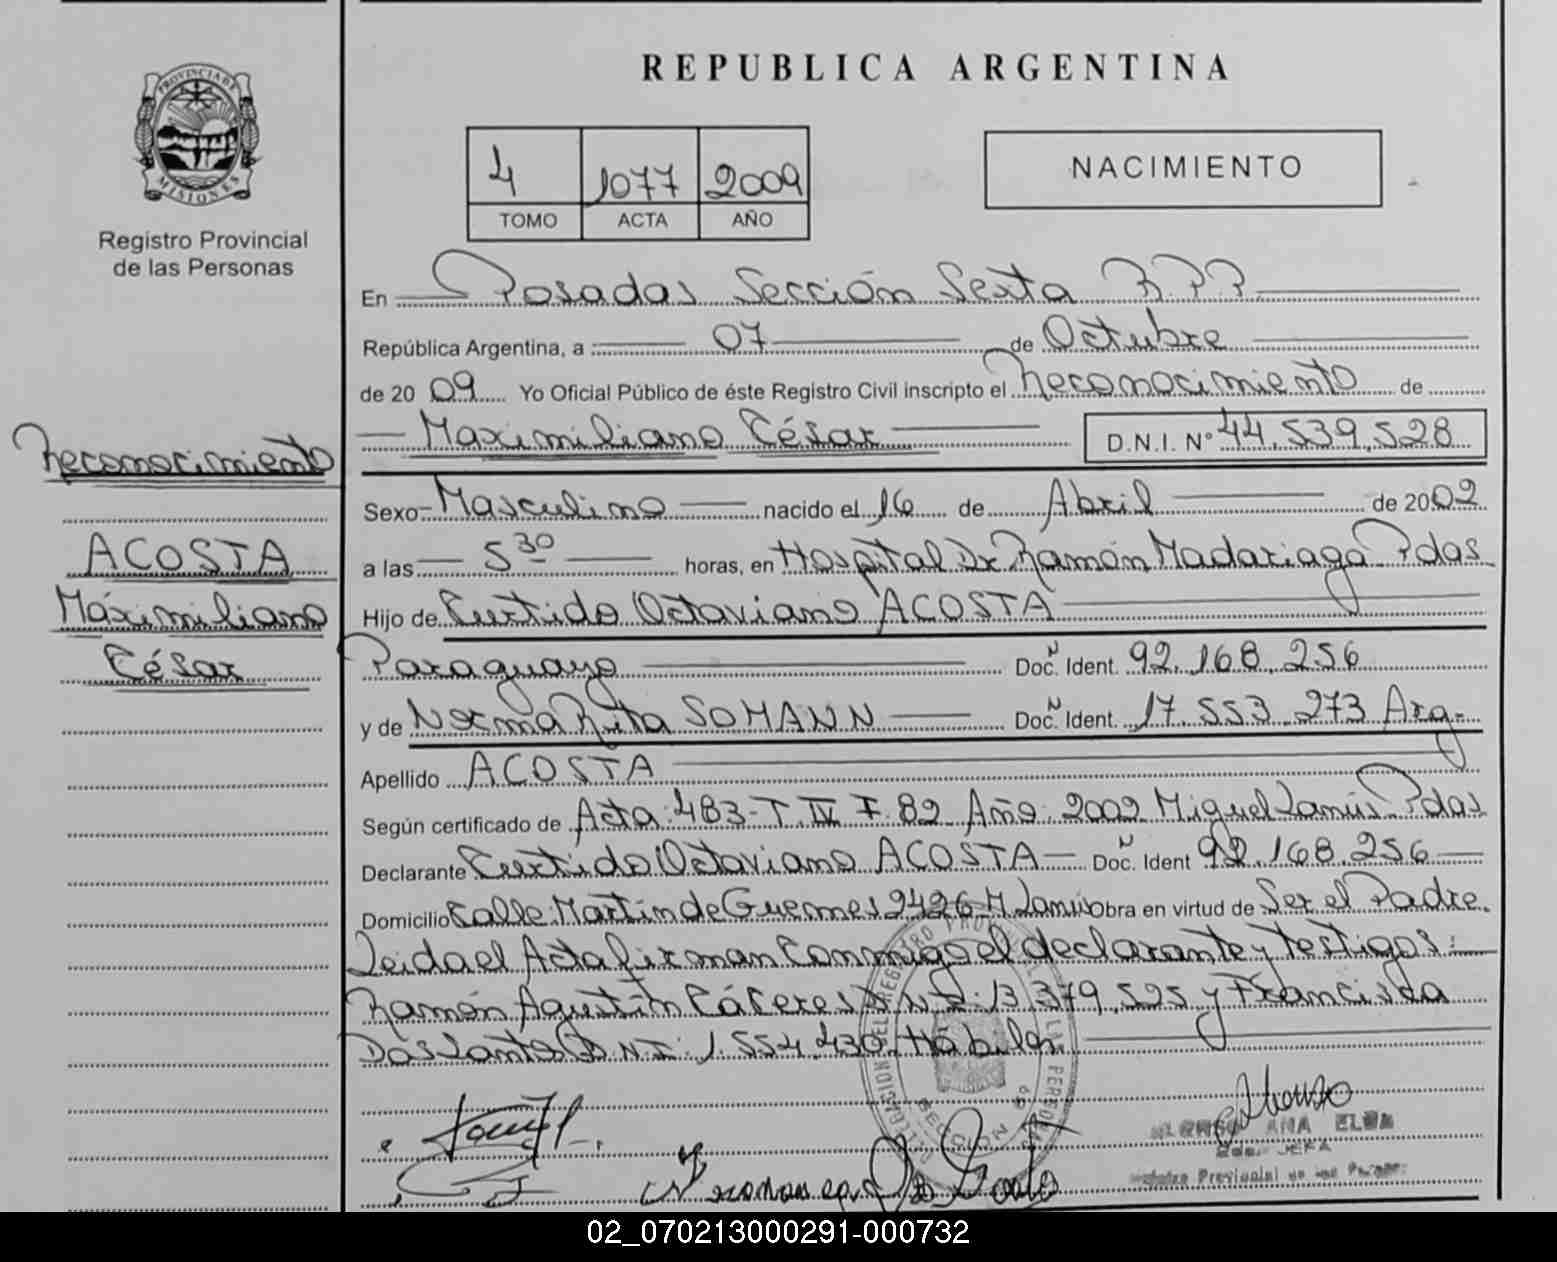 PROVINCIA DE
MISIONES
Registro Provincial
de las Personas
Reconocimiento
ACOSTA
Maximiliano
César
REPUBLICA ARGENTINA
4 1077 2009
TOMO ACTA AÑO
NACIMIENTO
En Posadas Sección Sexta R.P.P.
República Argentina, a 07 de Octubre
de 20 09 Yo Oficial Público de éste Registro Civil inscripto el Reconocimiento de
Maximiliano César D.N.I. N° 44.539.528
Sexo Masculino nacido el 16 de Abril de 2002
a las 5 30 horas, en Hospital Dr Ramón Madariaga Pdas
Hijo de Curtido Octaviano ACOSTA
Paraguayo Doc. Ident. 92.168.256
y de Norma Rita SOMANN Doc. Ident. 17.553.273 Arg.
Apellido ACOSTA
Según certificado de Acta 483-T.IV F.82 Año 2002 Miguel Lanús Pdas
Declarante Curtido Octaviano ACOSTA Doc. Ident 92.168.256
Domicilio Calle Martin de Guemes 9426 M Lanus Obra en virtud de Ser el Padre.
Leida el Acta firman Conmigo el declarante y testigos:
Ramón Agustín Cáceres D.N.I. 13.379.595 y Francisca
Dos Santos D.N.I. 1.554.430 Hábiles
ANA ELBA
JEFA
Provincial de las
02_070213000291-000732